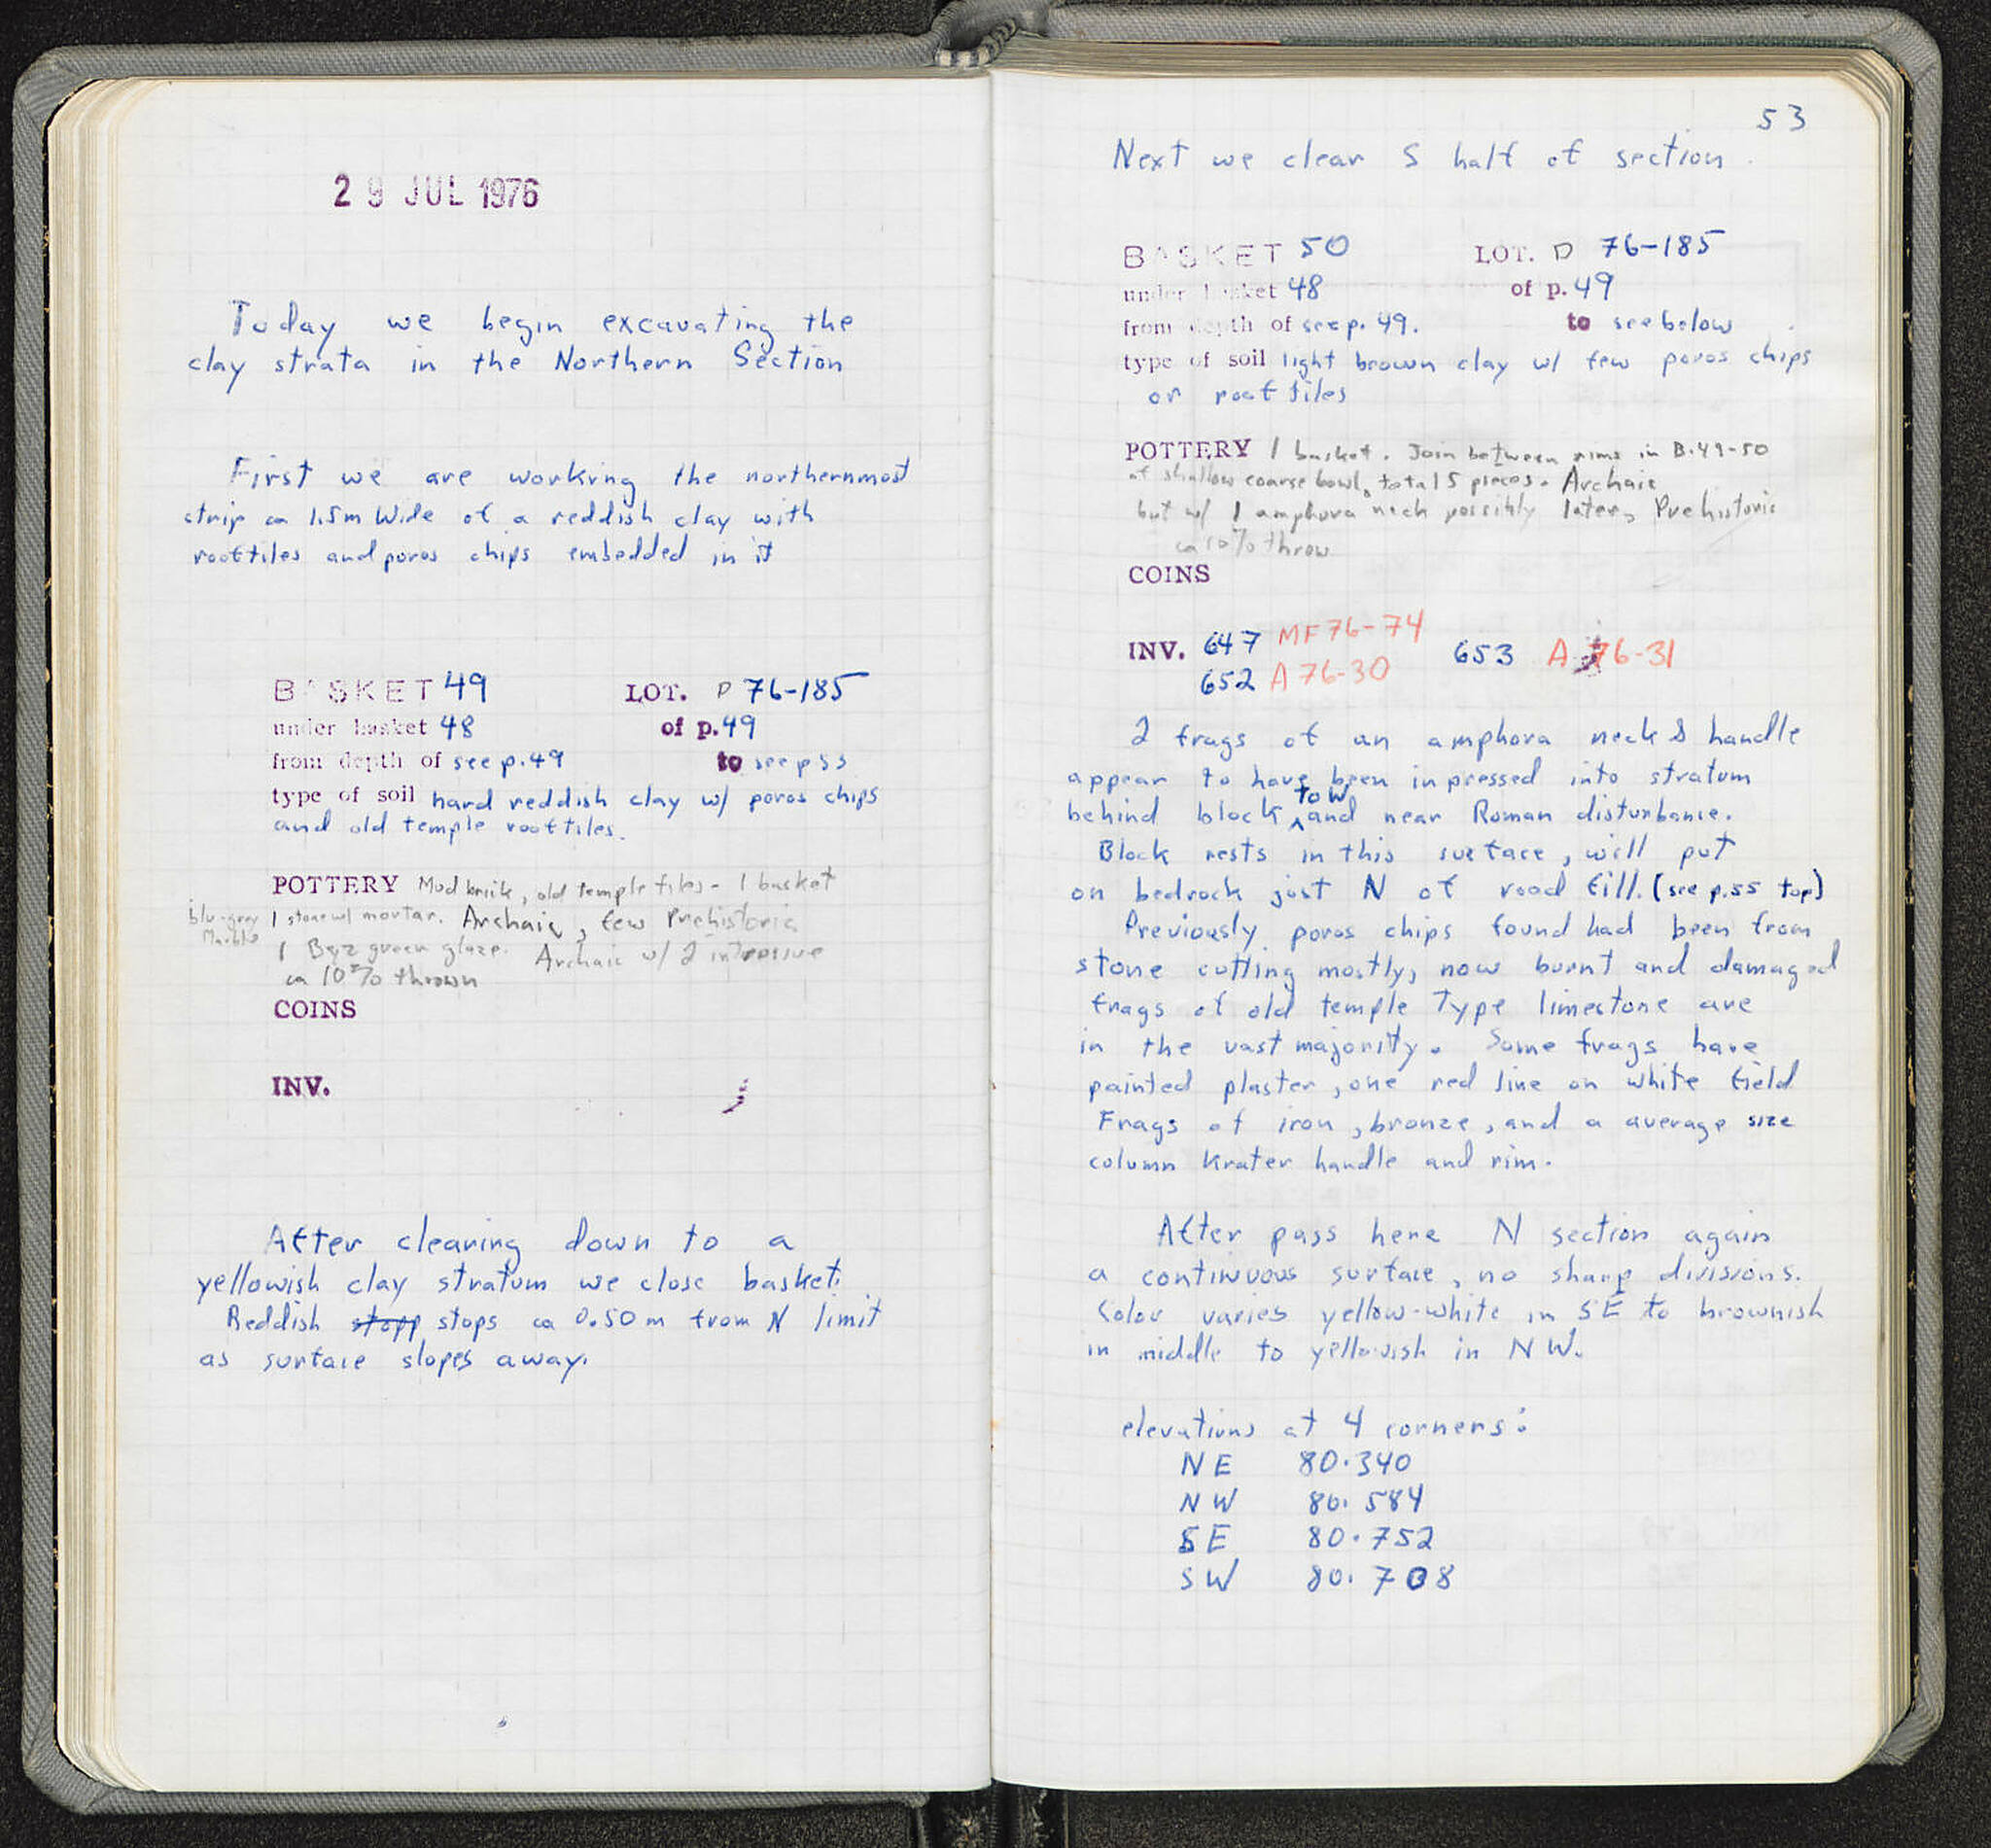 29 JUL 1976
Today we begin excavating the
clay strata in the Northern Section
First we are working the northernmost
strip ca 1.5m wide of a reddish clay with
rooftiles and poros chips embedded in it
BASKET 49 LOT. P 76-185
under basket 48 of p. 49
from depth of see p. 49 to see p 53
type of soil hard reddish clay w/ poros chips
and old temple rooftiles.
POTTERY Mud brick, old temple tiles - 1 basket
blu-grey 1 stone w/ mortar. Archaic, few Prehistoric
Marble
1 Byz green glaze. Archaic w/ 2 intrusive
ca 10% thrown
COINS
INV.
After clearing down to a
yellowish clay stratum we close basket.
Reddish stopp stops ca 0.50m from N limit
as surface slopes away.
53
Next we clear S half of section.
BASKET 50 LOT. D 76-185
under basket 48 of p. 49
from depth of see p. 49. to see below
type of soil light brown clay w/ few poros chips
or rooftiles
POTTERY 1 basket. Join between rims in B.49-50
of shallow coarse bowl, total 5 pieces. Archaic
but w/ 1 amphora neck possibly later, Prehistoric
ca 10% throw
COINS
INV. 647 MF76-74 653 A 76-31
652 A 76-30
2 frags of an amphora neck & handle
appear to have been inpressed into stratum
behind block to W and near Roman disturbance.
Block rests in this surface, will put
on bedrock just N of road fill. (see p.55 top)
Previously poros chips found had been from
stone cutting mostly, now burnt and damaged
frags of old temple Type limestone are
in the vast majority. Some frags have
painted plaster, one red line on white field
Frags of iron, bronze, and a average size
column krater handle and rim.
After pass here N section again
a continuous surface, no sharp divisions.
Color varies yellow-white in SE to brownish
in middle to yellowish in NW.
elevations at 4 corners:
NE 80.340
NW 80.584
SE 80.752
SW 80.708